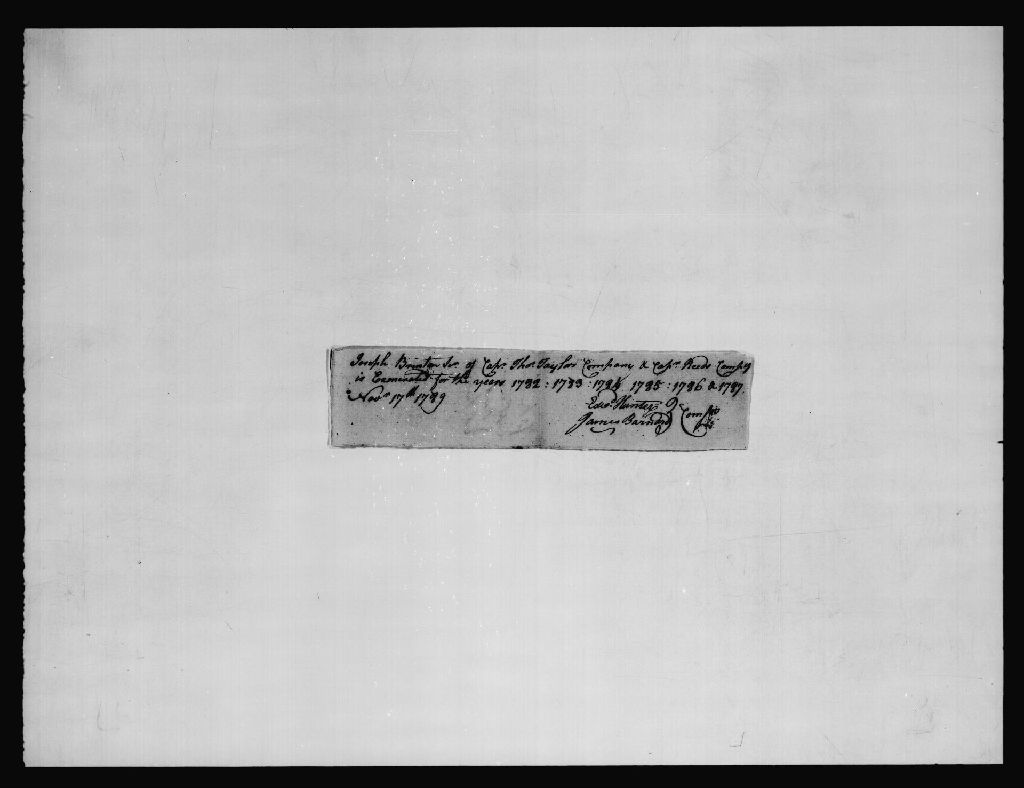 Joseph Brinton Jr. of Capt. Thos. Taylor Company & Capt. Reeds Company
is Exonerated for the years 1782 : 1783 : 1784 1785 : 1786 & 1787.
Novr. 17th 1789
Edwd. Hunter
James Barnard